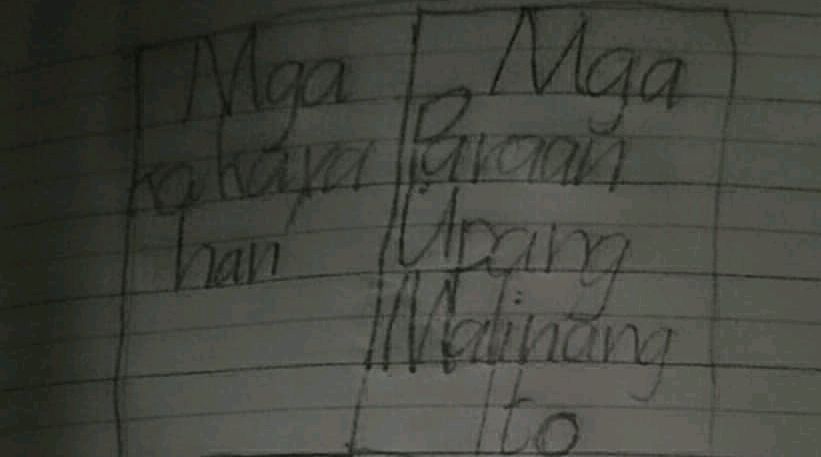 Mga
kakaya
han
Mga
Paraan
Upang
Malinang
Ito